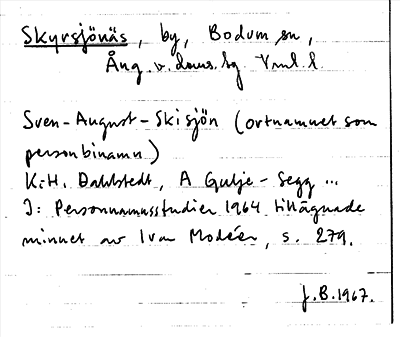 Skyrsjönäs, by, Bodum sn,
Ång. v. doms. bg Vnl. l.
Sven-August-Skisjön (ortnamnet som
personbinamn)
K.-H. Dahlstedt, A Gulje-Segg ...
I: Personnamnsstudier 1964 tillägnade
minnet av Ivar Modéer, s. 279.
J.B. 1967.